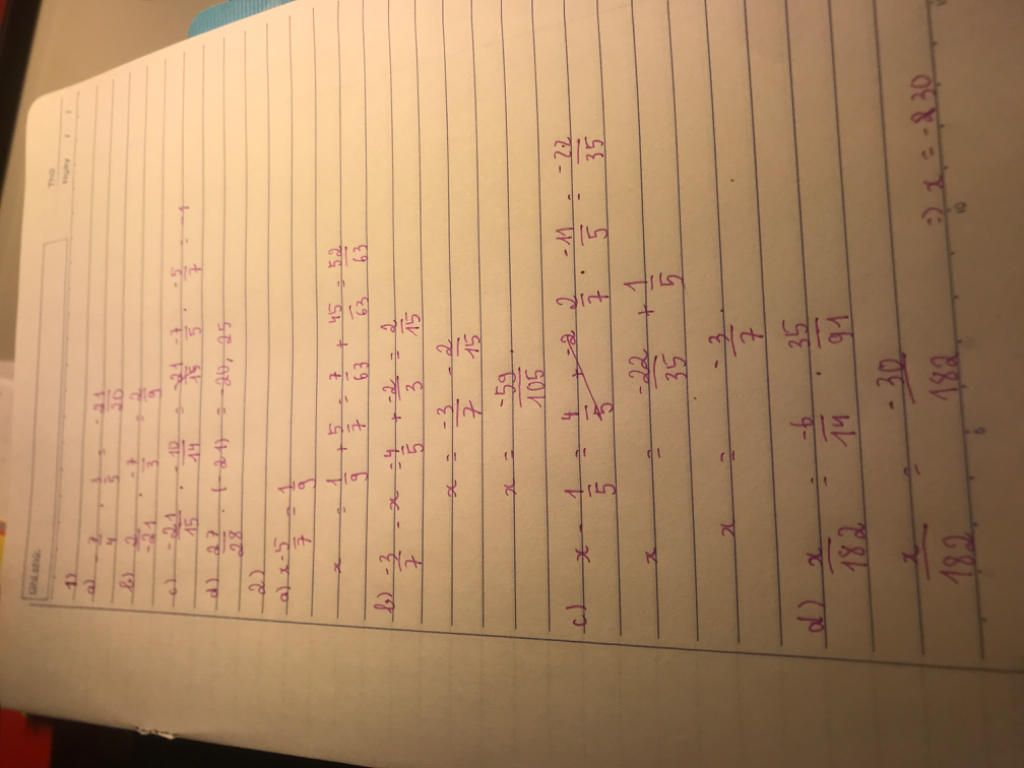 Thứ
Ngày / /
1)
a) -7/4 . 3/5 = -21/20
b) 2/-21 . -7/3 = 2/9
c) -21/15 . -10/14 = -21/15 . -7/5 . -5/7 = -1
d) 27/28 . (-21) = -20,25
2)
a) x - 5/7 = 1/9
x = 1/9 + 5/7 = 7/63 + 45/63 = 52/63
b) -3/7 - x = 4/5 + -2/3 = 2/15
x = -3/7 - 2/15
x = -59/105
c) x - 1/5 = 2/7 . -11/5 = -22/35
x = -22/35 + 1/5
x = -3/7
d) x/182 = -6/14 . 35/91
x/182 = -30/182 => x = -30